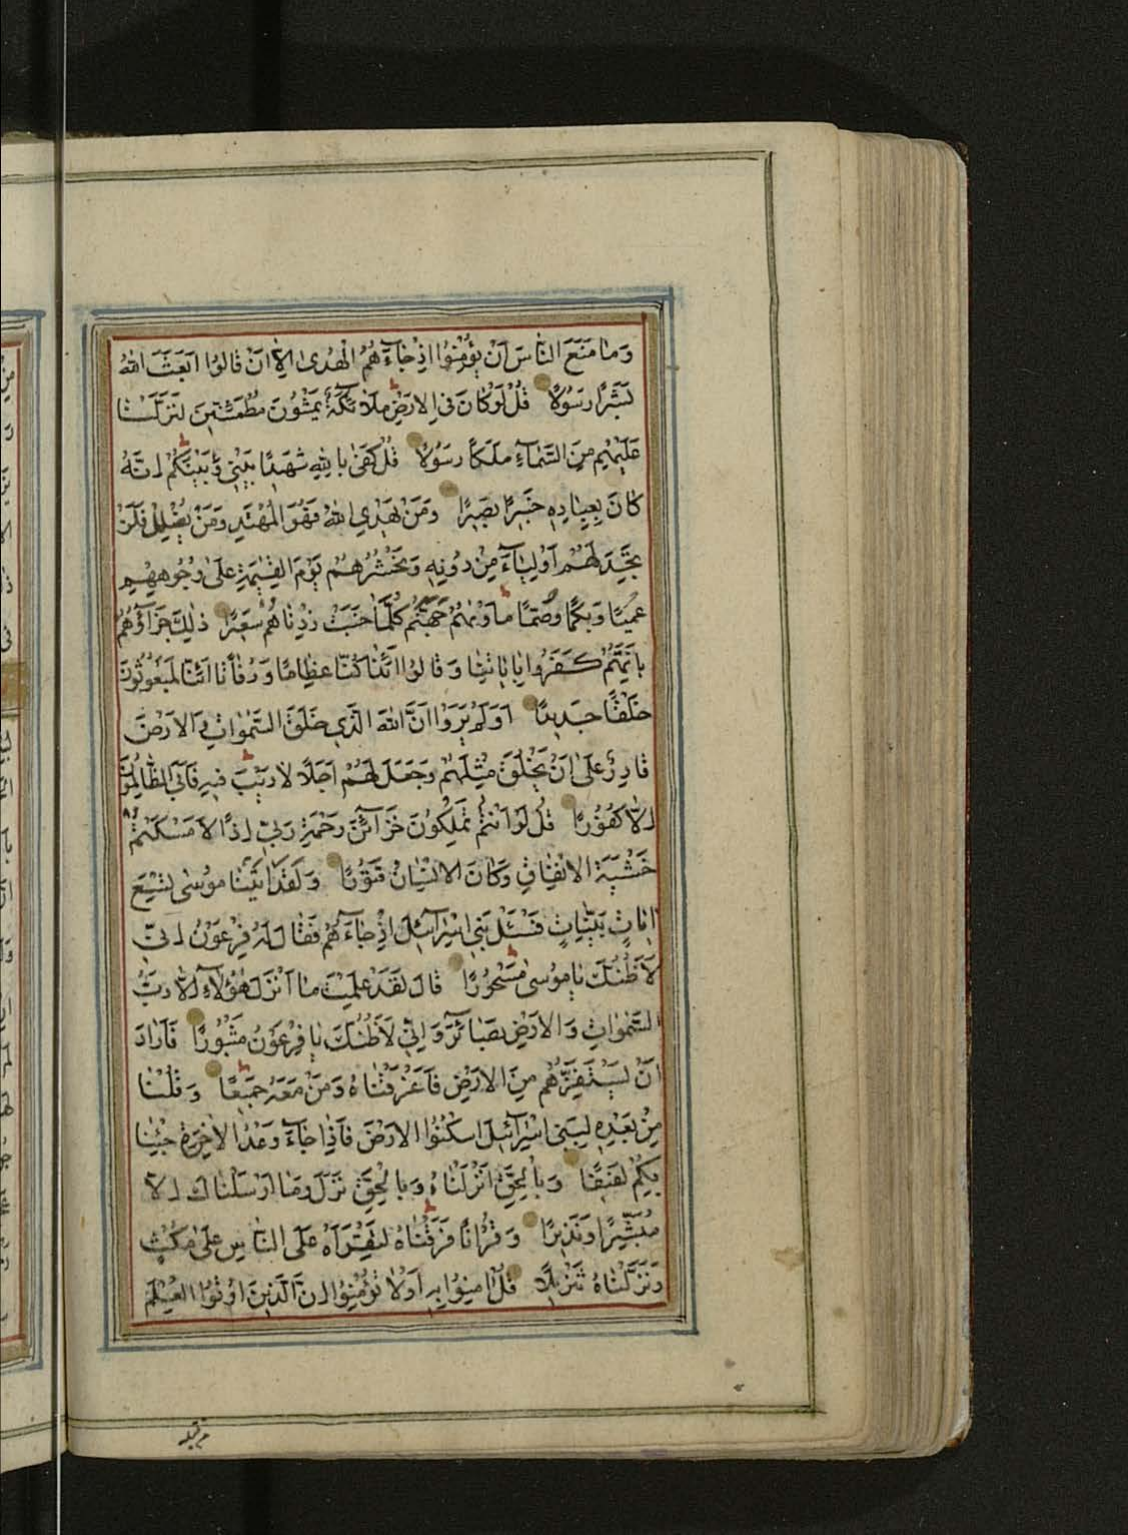 وَمَا مَنَعَ النَّاسَ اَنْ يُؤْمِنُوا اِذْ جَاءَهُمُ الْهُدٰى اِلَّا اَنْ قَالُوا اَبَعَثَ اللّٰهُ
بَشَرًا رَسُولًا قُلْ لَوْ كَانَ فِى الْاَرْضِ مَلٰائِكَةٌ يَمْشُونَ مُطْمَئِنّٖينَ لَنَزَّلْنَا
عَلَيْهِمْ مِنَ السَّمَاءِ مَلَكًا رَسُولًا قُلْ كَفٰى بِاللّٰهِ شَهٖيدًا بَيْنٖى وَبَيْنَكُمْ اِنَّهُ
كَانَ بِعِبَادِهٖ خَبٖيرًا بَصٖيرًا وَمَنْ يَهْدِى اللّٰهُ فَهُوَ الْمُهْتَدِ وَمَنْ يُضْلِلْ فَلَنْ
تَجِدَ لَهُمْ اَوْلِيَاءَ مِنْ دُونِهٖ وَنَحْشُرُهُمْ يَوْمَ الْقِيٰمَةِ عَلٰى وُجُوهِهِمْ
عُمْيًا وَبُكْمًا وَصُمًّا مَاْوٰيهُمْ جَهَنَّمُ كُلَّمَا خَبَتْ زِدْنَاهُمْ سَعٖيرًا ذٰلِكَ جَزَاؤُهُمْ
بِاَنَّهُمْ كَفَرُوا بِاٰيَاتِنَا وَقَالُوا اَئِذَا كُنَّا عِظَامًا وَرُفَاتًا اَئِنَّا لَمَبْعُوثُونَ
خَلْقًا جَدٖيدًا اَوَلَمْ يَرَوْا اَنَّ اللّٰهَ الَّذٖى خَلَقَ السَّمٰوَاتِ وَالْاَرْضَ
قَادِرٌ عَلٰى اَنْ يَخْلُقَ مِثْلَهُمْ وَجَعَلَ لَهُمْ اَجَلًا لَا رَيْبَ فٖيهِ فَاَبَى الظَّالِمُونَ
اِلَّا كُفُورًا قُلْ لَوْ اَنْتُمْ تَمْلِكُونَ خَزَائِنَ رَحْمَةِ رَبّٖى اِذًا لَاَمْسَكْتُمْ
خَشْيَةَ الْاِنْفَاقِ وَكَانَ الْاِنْسَانُ قَتُورًا وَلَقَدْ اٰتَيْنَا مُوسٰى تِسْعَ
اٰيَاتٍ بَيِّنَاتٍ فَسْئَلْ بَنٖى اِسْرَائٖلَ اِذْ جَاءَهُمْ فَقَالَ لَهُ فِرْعَوْنُ اِنّٖى
لَاَظُنُّكَ يَا مُوسٰى مَسْحُورًا قَالَ لَقَدْ عَلِمْتَ مَا اَنْزَلَ هٰؤُلَاءِ اِلَّا رَبُّ
السَّمٰوَاتِ وَالْاَرْضِ بَصَائِرَ وَاِنّٖى لَاَظُنُّكَ يَا فِرْعَوْنُ مَثْبُورًا فَاَرَادَ
اَنْ يَسْتَفِزَّهُمْ مِنَ الْاَرْضِ فَاَغْرَقْنَاهُ وَمَنْ مَعَهُ جَمٖيعًا وَقُلْنَا
مِنْ بَعْدِهٖ لِبَنٖى اِسْرَائٖلَ اسْكُنُوا الْاَرْضَ فَاِذَا جَاءَ وَعْدُ الْاٰخِرَةِ جِئْنَا
بِكُمْ لَفٖيفًا وَبِالْحَقِّ اَنْزَلْنَاهُ وَبِالْحَقِّ نَزَلَ وَمَا اَرْسَلْنَاكَ اِلَّا
مُبَشِّرًا وَنَذٖيرًا وَقُرْاٰنًا فَرَقْنَاهُ لِتَقْرَاَهُ عَلَى النَّاسِ عَلٰى مُكْثٍ
وَنَزَّلْنَاهُ تَنْزٖيلًا قُلْ اٰمِنُوا بِهٖ اَوْ لَا تُؤْمِنُوا اِنَّ الَّذٖينَ اُوتُوا الْعِلْمَ